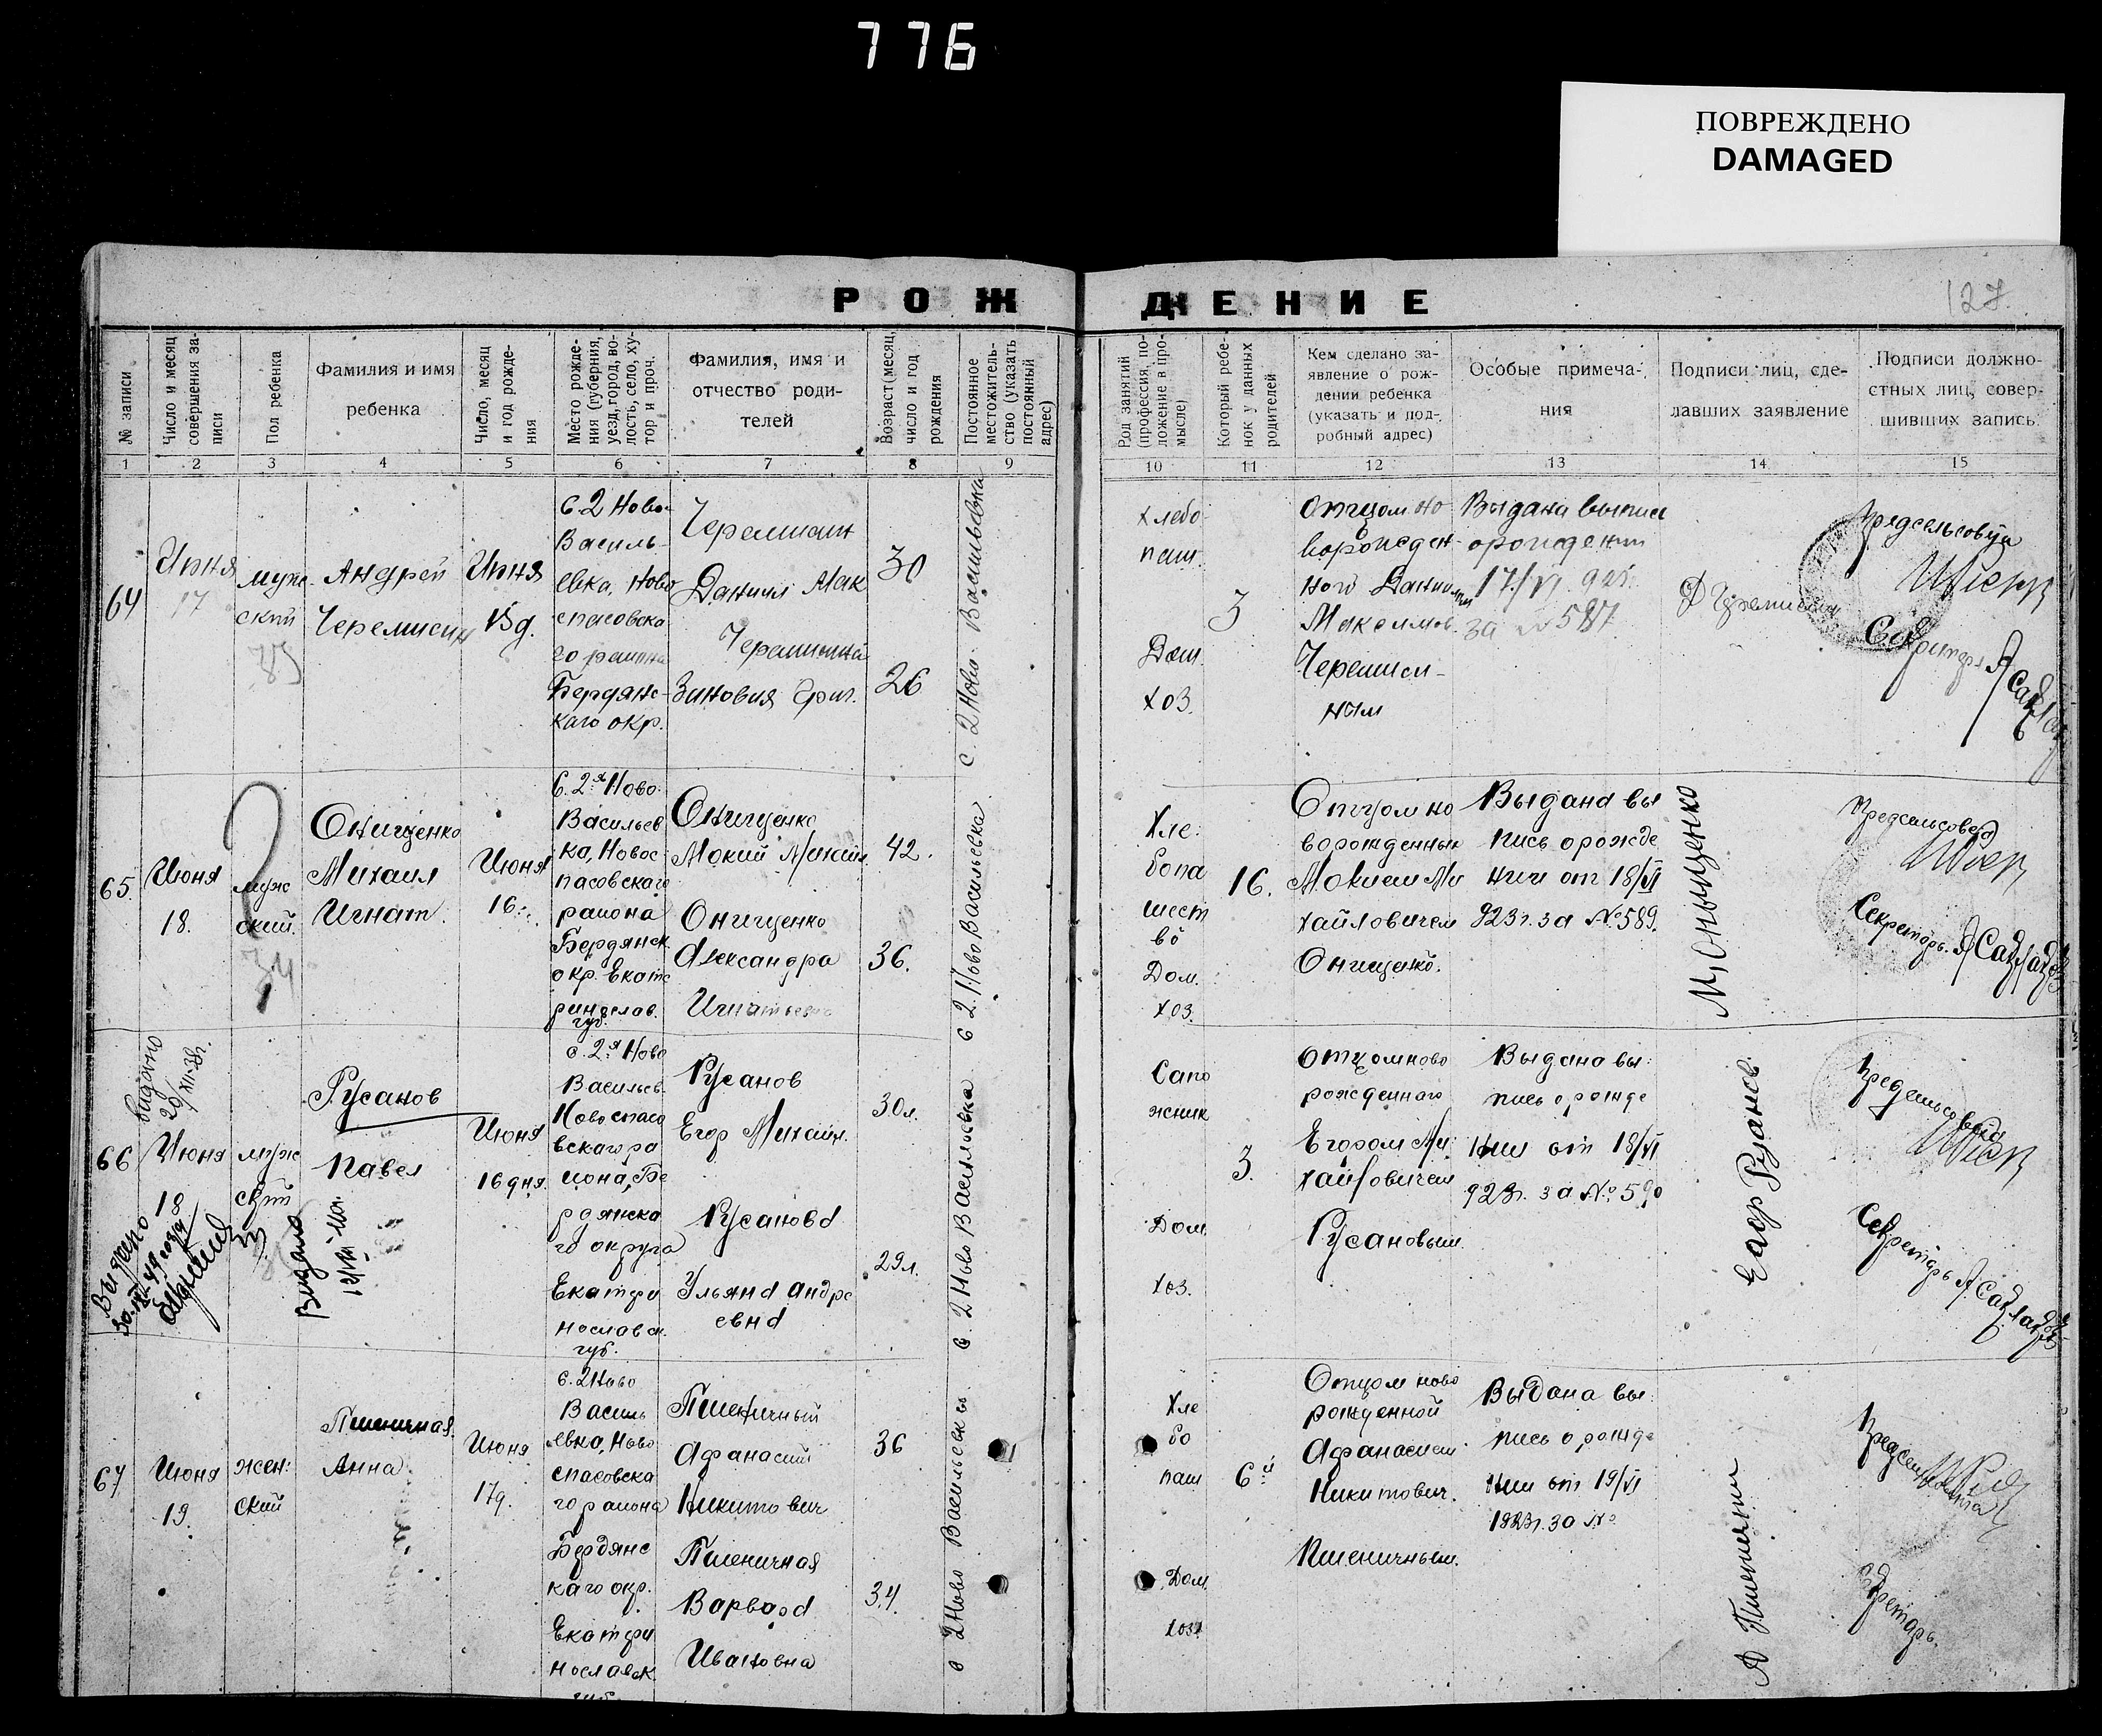 776
ПОВРЕЖДЕНО
DAMAGED
РОЖДЕНИЕ
127
№ записи
Число и месяц
совершения за-
писи
Пол ребенка
Фамилия и имя
ребенка
Число, месяц
и год рожде-
ния
Место рожде-
ния (губерния,
уезд, город, во-
лость, село, ху-
тор и проч.
Фамилия, имя и
отчество роди-
телей
Возраст (месяц,
число и год
рождения
Постоянное
местожитель-
ство (указать
постоянный
адрес)
Род занятий
(профессия, по-
ложение в про-
мысле)
Который ребе-
нок у данных
родителей
Кем сделано за-
явление о рож-
дении ребенка
(указать и под-
робный адрес)
Особые примеча-
ния
Подписи лиц, сде-
лавших заявление
Подписи должно-
стных лиц, совер-
шивших запись.
1 2 3 4 5 6 7 8 9 10 11 12 13 14 15
64
Июня
17
муж-
ский
33
Андрей
Черемисин
Июня
с. 2 Ново-
Василь-
евка, Ново
спасовско
го района
Бердянс-
каго окр.
Черемисин
Даниил Мак
Черемисина
Зиновия Григ.
30
26
с. 2 Ново-Васильевка
хлебо
паш.
Дом.
хоз.
3
Отцом но
ворожден-
ного Даниилом
Максимов.
Черемиси-
ным
Выдана выпись
о рождении
17/VI 923г.
за № 587
Д Черемисин
Предсельсовета
Секретарь
65
Июня
18.
муж
ский.
34
Онищенко
Михаил
Игнат.
Июня
16
с. 2я Ново
Васильев
ка, Новос
пасовского
района
Бердянск.
окр. Екате
ринослав.
губ.
Онищенко
Мокий Михайл.
Онищенко
Александра
Игнатьевна
42.
36.
с 2 Ново Васильевка
Хле-
бопа
шест
во
Дом.
хоз.
16.
Отцом но
ворожденным
Мокием Ми
хайловичем
Онищенко.
Выдана вы
пись о рожде
нии от 18/VI
923г. за № 589.
М. Онищенко
Предсельсовета
Секретарь
66
видано
29/XII-38г.
Июня
18
Выдано
муж
ский
Русанов
Павел
Видано
Июня
16 дня.
с. 2я Ново
Васильев.
Новоспасо
вскаго ра
иона, Бе
рдянско
го округа
Екатери
нославск.
губ.
Русанов
Егор Михайл.
Русанова
Ульяна Андре
евна
30л.
29л.
с. 2 Ново Васильевка
Сапо
жник
Дом.
хоз.
3.
Отцом ново
рожденного
Егором Ми
хайловичем
Русановым.
Выдана вы-
пись о рожде
нии от 18/VI
923г. за № 590
Егор Русанов
Предсельсовета
Секретарь
67
Июня
19.
жен-
ский
Пшеничная
Анна
Июня
17д.
с. 2 Ново
Василь
евка, Ново
спасовско
го района
Бердянс
каго окр.
Екатери
нославск
губ.
Пшеничный
Афанасий
Никитович
Пшеничная
Варвара
Ивановна
36
34.
с 2 Ново Васильевка
Хле
бо
паш
Дом.
хоз.
6й
Отцом ново
рожденной
Афанасием
Никитович.
Пшеничным.
Выдана вы-
пись о рожде
нии от 19/VI
1923г. за №
А Пшеничный
Предсельсовета
Секретарь.